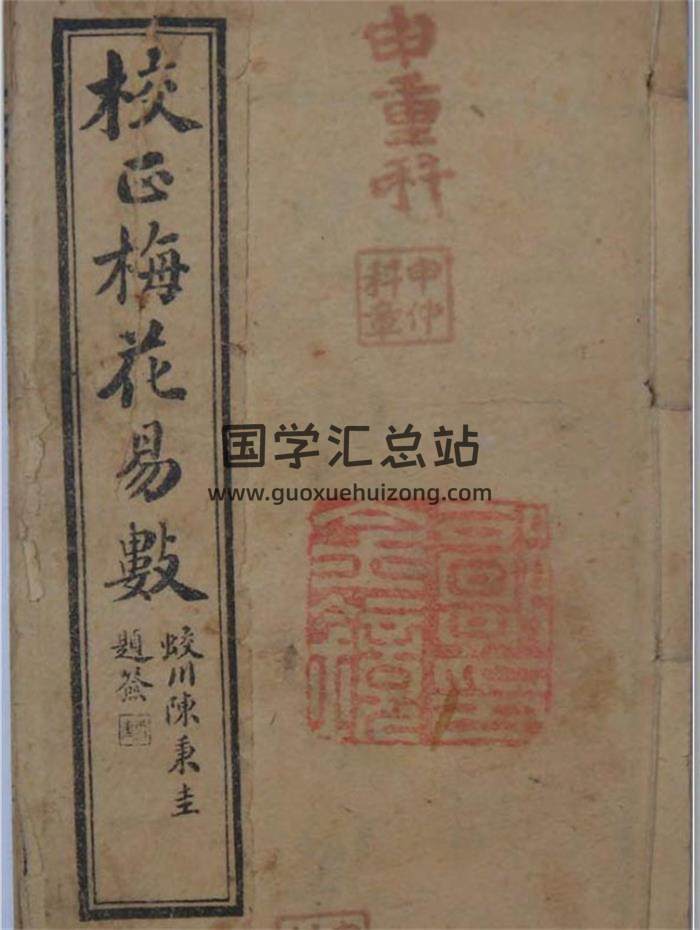 校正梅花易數
蛟川陳秉圭
題簽
申重科
申仲
科章
国学汇总站
www.guoxuehuizong.com